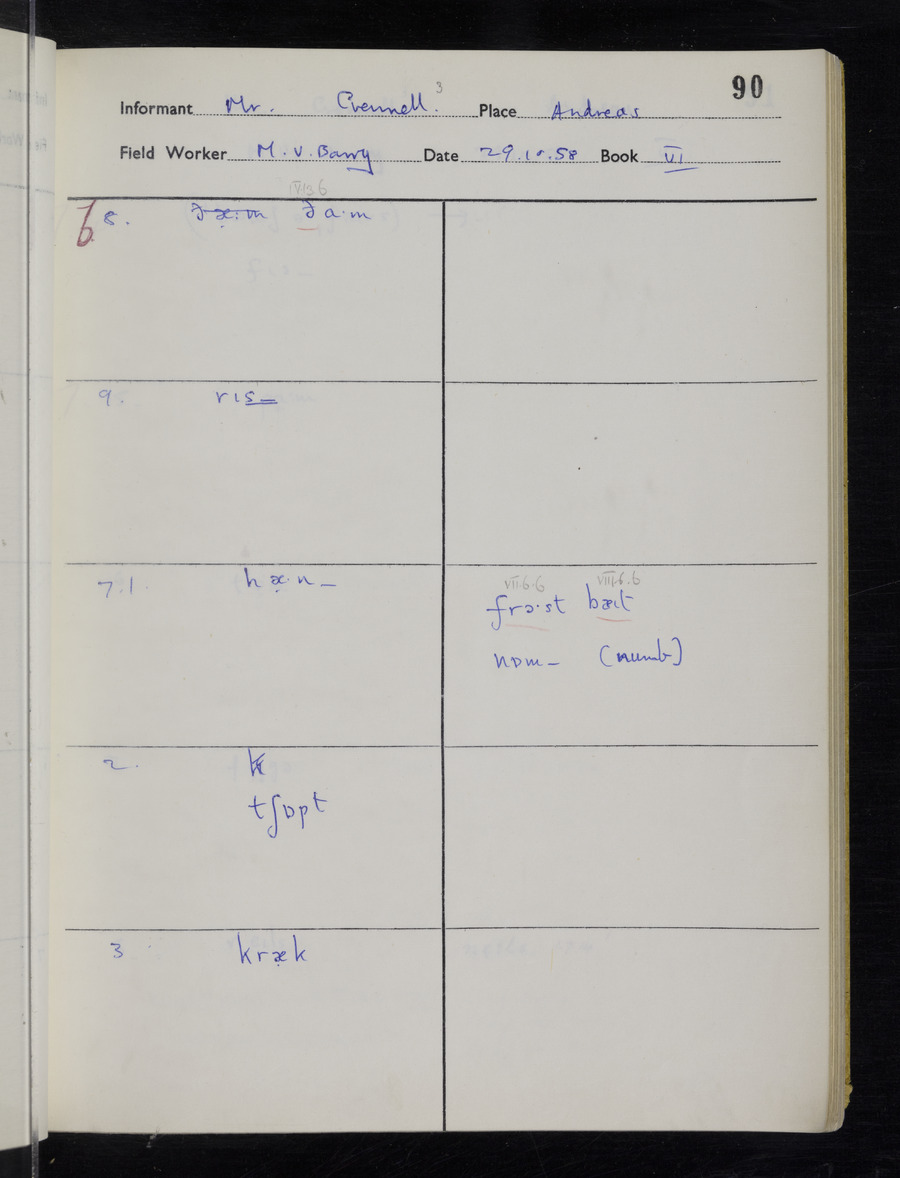 90
Informant Mr. Crennell. 3 Place Andreas
Field Worker M. V. Barry Date 29.10.58 Book VI
6 8. ðæ̣:m ða·m
9. rɪs–
7.1. hæ̣·n–
VII.6.6 VIII.6.6
frɔ·st bæɪt
nɒm– (numb)
2. k
tʃɒpt
3 kræ̣k